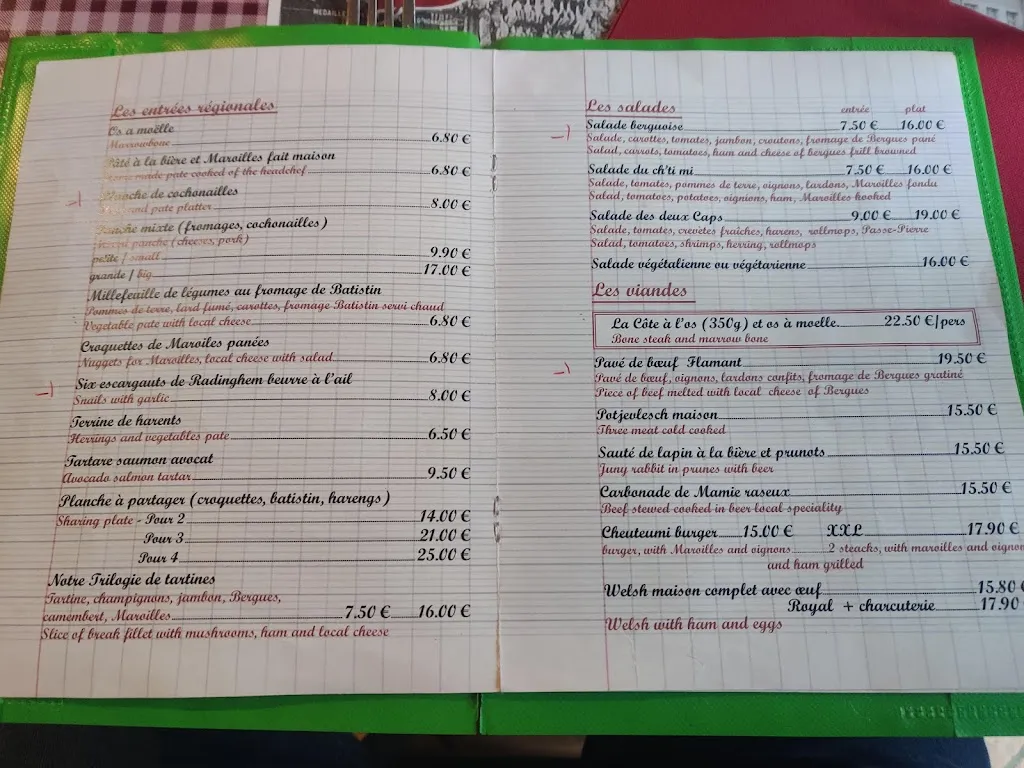 MEDAILLE
Les entrées régionales
Os a moëlle
Marrowbone 6.80 €
Pâté à la bière et Maroilles fait maison
made pate cooked of the headchef 6.80 €
Planche de cochonailles
pate platter 8.00 €
Planche mixte (fromages, cochonailles)
panche (cheeses, pork)
petite / small 9.90 €
grande / big 17.00 €
Millefeuille de légumes au fromage de Batistin
Pommes de terre, lard fumé, carottes, fromage Batistin servi chaud
Vegetable pate with local cheese 6.80 €
Croquettes de Maroiles panées
Nuggets for Maroilles, local cheese with salad 6.80 €
Six escargauts de Radinghem beurre à l'ail
Snails with garlic 8.00 €
Terrine de harents
Herrings and vegetables pate 6.50 €
Tartare saumon avocat
Avocado salmon tartar 9.50 €
Planche à partager (croquettes, batistin, harengs)
Sharing plate - Pour 2 14.00 €
Pour 3 21.00 €
Pour 4 25.00 €
Notre Trilogie de tartines
Tartine, champignons, jambon, Bergues,
camembert, Maroilles 7.50 € 16.00 €
Slice of break fillet with mushrooms, ham and local cheese
Les salades entrée plat
Salade berguoise 7.50 € 16.00 €
Salade, carottes, tomates, jambon, croutons, fromage de Bergues pané
Salad, carrots, tomatoes, ham and cheese of bergues frill browned
Salade du ch'ti mi 7.50 € 16.00 €
Salade, tomates, pommes de terre, oignons, lardons, Maroilles fondu
Salad, tomatoes, potatoes, oignions, ham, Maroilles hooked
Salade des deux Caps 9.00 € 19.00 €
Salade, tomates, crevètes fraîches, harens, rollmops, Passe-Pierre
Salad, tomatoes, shrimps, herring, rollmops
Salade végétalienne ou végétarienne 16.00 €
Les viandes
La Côte à l'os (350g) et os à moelle 22.50 €/pers
Bone steak and marrow bone
Pavé de bœuf Flamant 19.50 €
Pavé de bœuf, oignons, lardons confits, fromage de Bergues gratiné
Piece of beef melted with local cheese of Bergues
Potjevlesch maison 15.50 €
Three meat cold cooked
Sauté de lapin à la bière et prunots 15.50 €
Jung rabbit in prunes with beer
Carbonade de Mamie raseux 15.50 €
Beef stewed cooked in beer local speciality
Cheuteumi burger 15.00 € XXL 17.90 €
burger, with Maroilles and oignons 2 steacks, with maroilles and oignon
and ham grilled
Welsh maison complet avec œuf 15.80 €
Royal + charcuterie 17.90
Welsh with ham and eggs